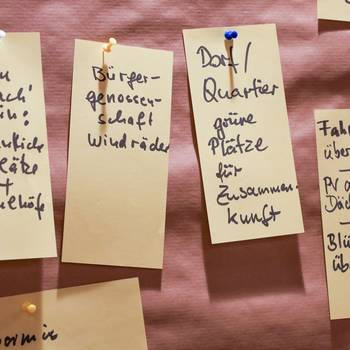 lätze
+
Bürger-
genossen-
schaft
Windräder
Dorf/
Quartier
grüne
Plätze
für
Zusammen-
kunft
Fahr
über
PV
Däch
Blü
üb